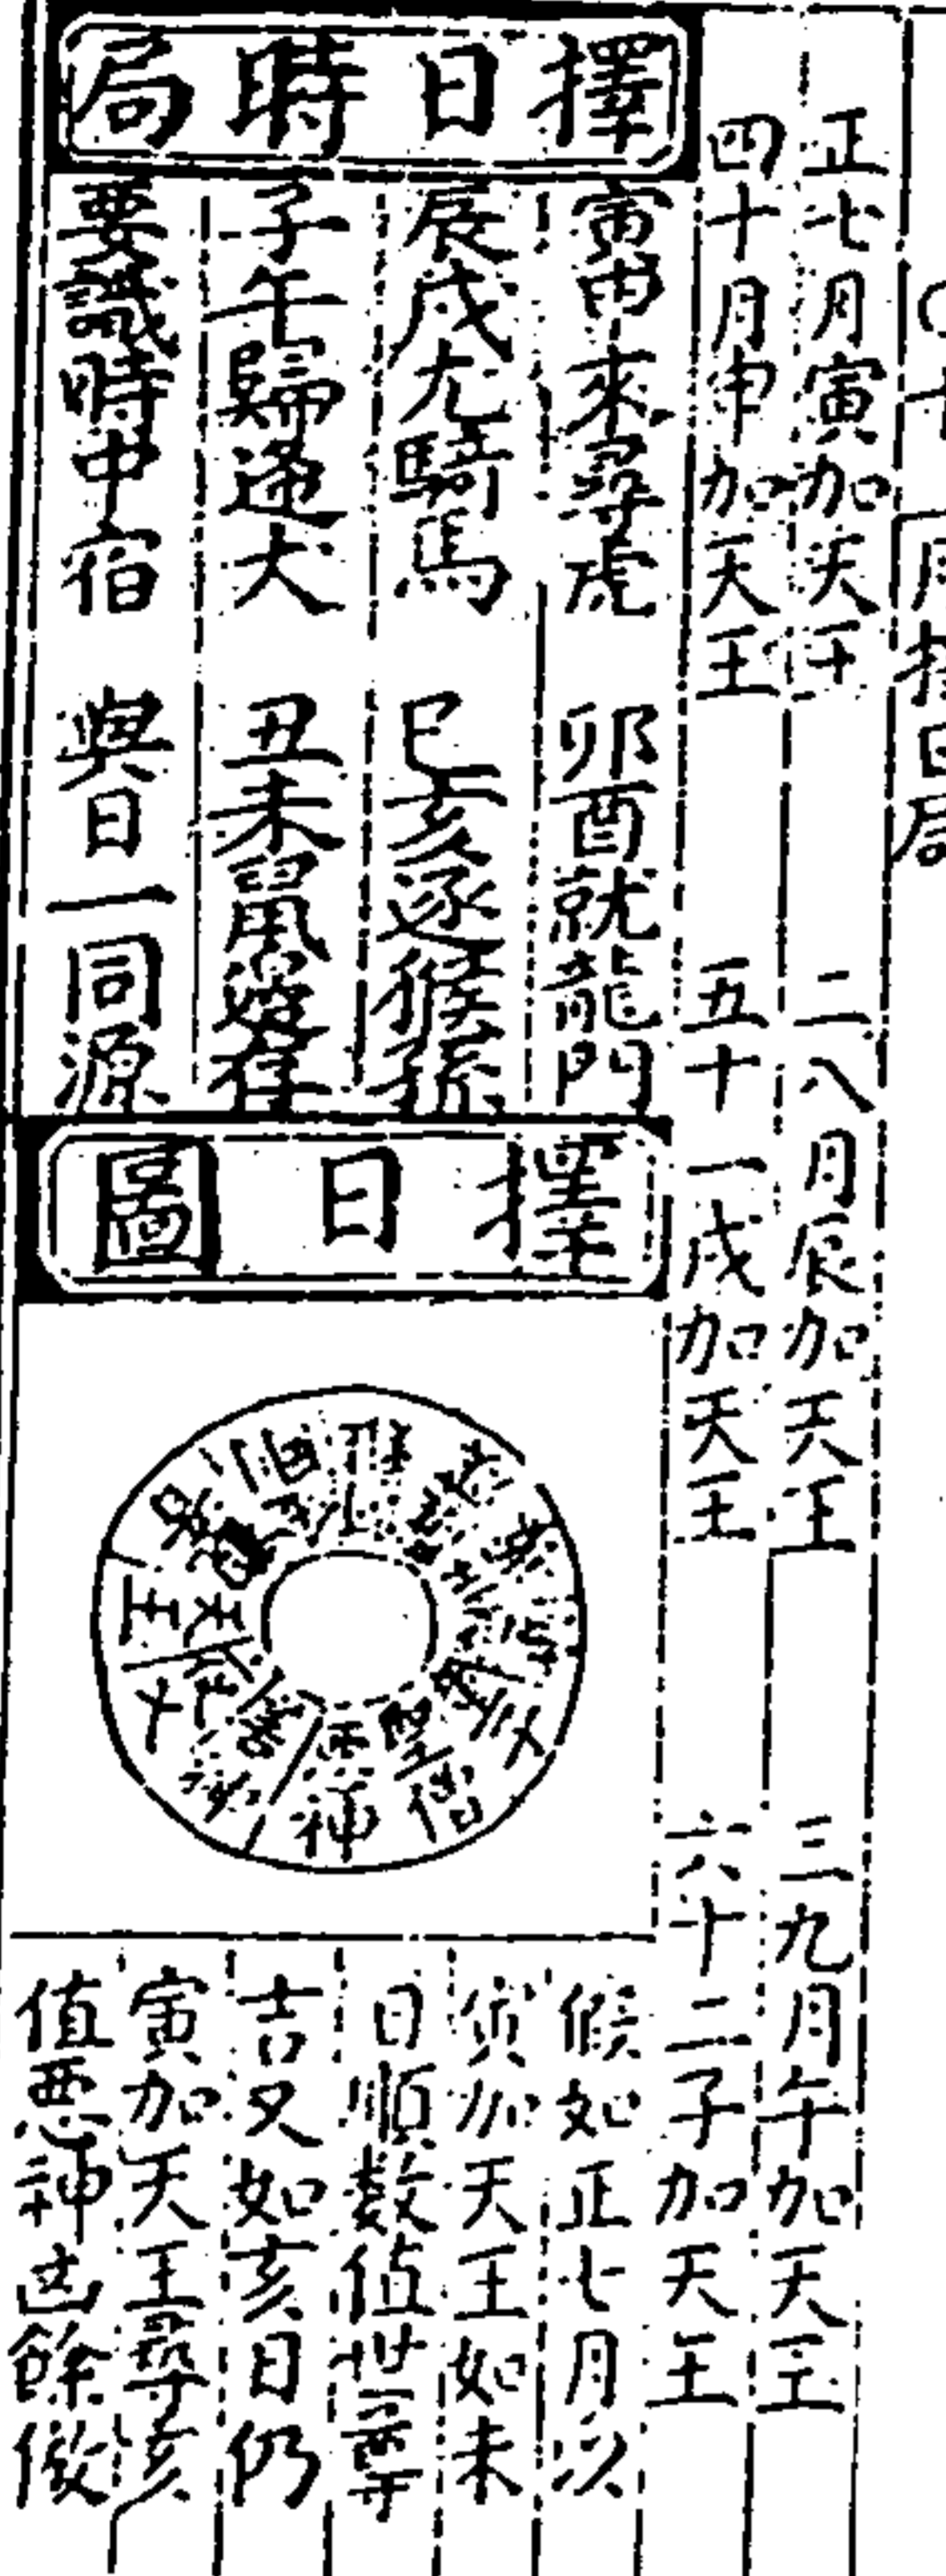 月擇日局
正七月寅加天王 二八月辰加天王 三九月午加天王
四十月申加天王 五十一戌加天王 六十二子加天王
擇日時局
寅申來尋虎 卯酉就龍門
辰戌尤騎馬 巳亥逐猴孫
子午歸逢犬 丑未鼠
要識時中宿 與日一同源
擇日圖
天王
惡神
聖僧
假如正七月以
寅加天王如未
日順数值世尊
吉又如亥日仍
寅加天王尋亥
值惡神凶餘倣